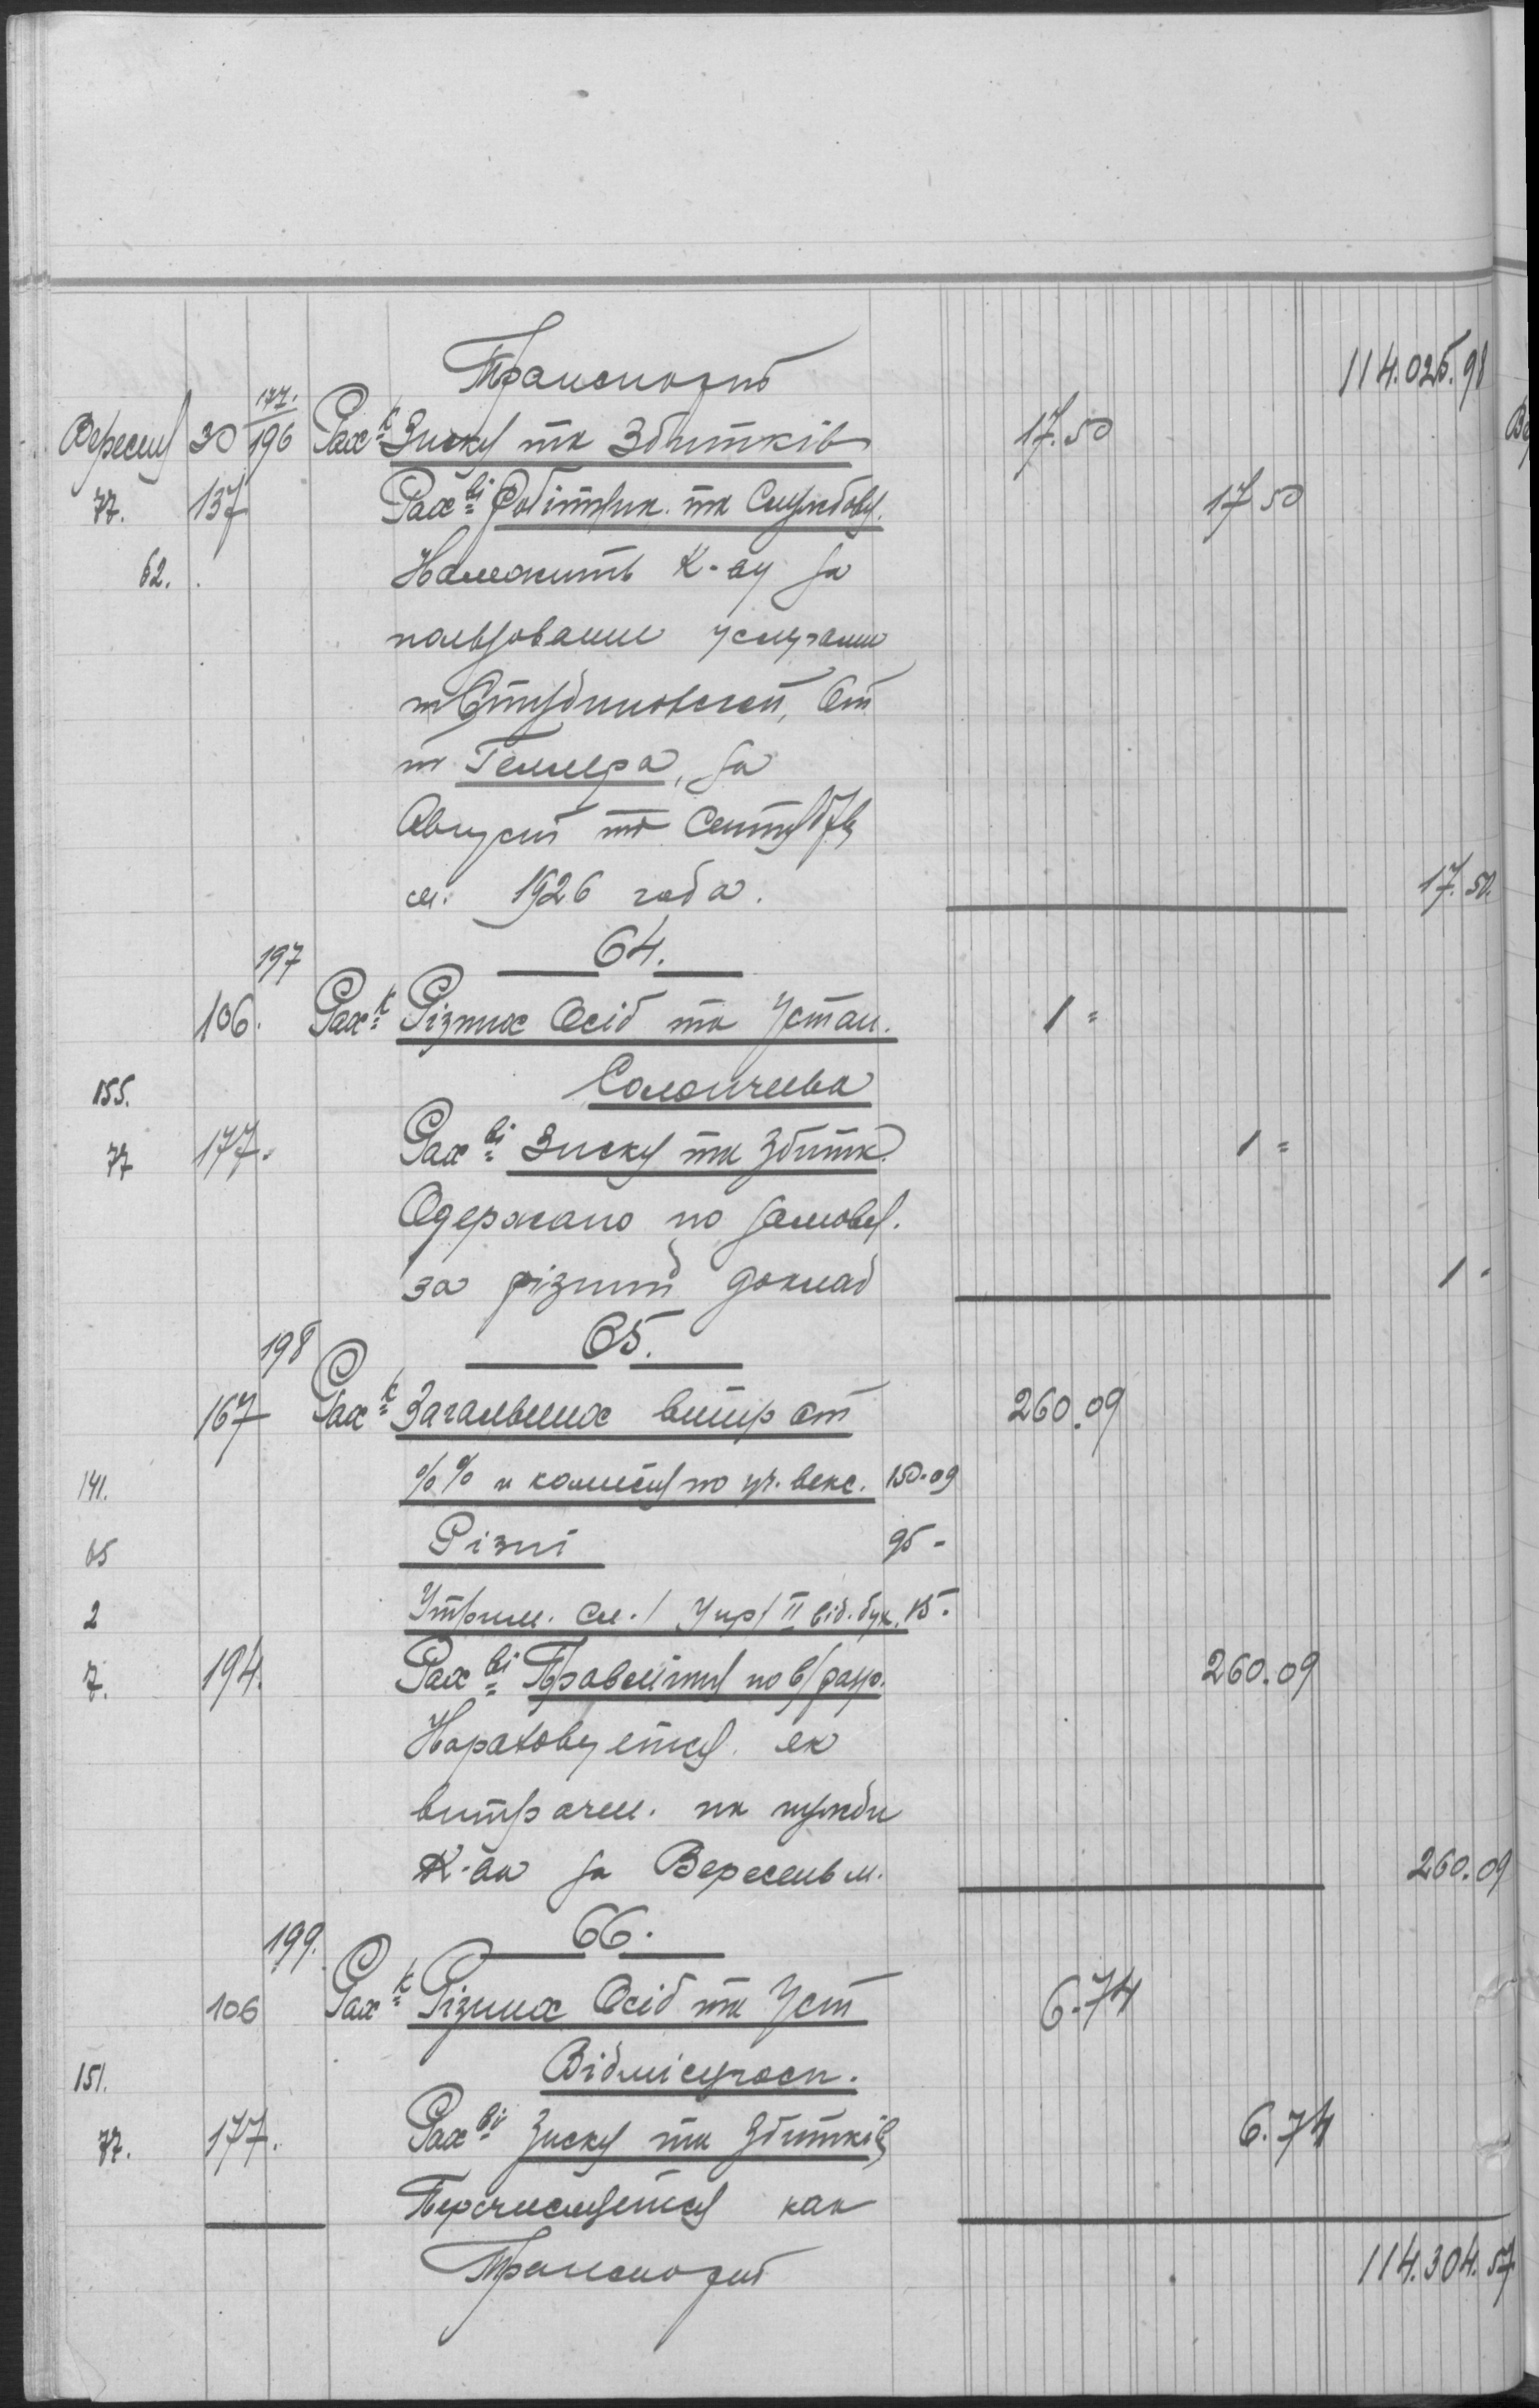 Транспорт 114.025.98
177.
Вересня 30 196 Рах-к Зиску та Збитків 17.50
77. 137 Рах-ві Робітник. та Службовц. 17 50
62. Належить К-ву за
пользование услугами
т Студиновской, От
т Геллера, за
Август та Сентябрь
м. 1926 года. 17.50.
197 64.
106. Рах-к Різних Осіб та Устан. 1 =
155.
77 177. Рах-ві Зиску та Збитк. 1 =
Одержано по замовл.
за різний доклад 1 -
198 65.
167 Рах-к Загальних витрат 260.09
141. %% и комисия по уч. векс. 150-09
65 Різні 95 -
2 Утрим. Сл. / Упр / II від. бух. 15 -
7. 194. Рах-ві Правління по в/рахр. 260.09
Нараховуется як
витрачен. на нужди
К-ва за Вересень м. 260.09
199. 66.
106 Рах-к Різних Осіб та Уст 6.74
151.
77. 177. Рах-ві Зиску та Збитків 6.74
Перечисляется как
Транспорт 114.304.57